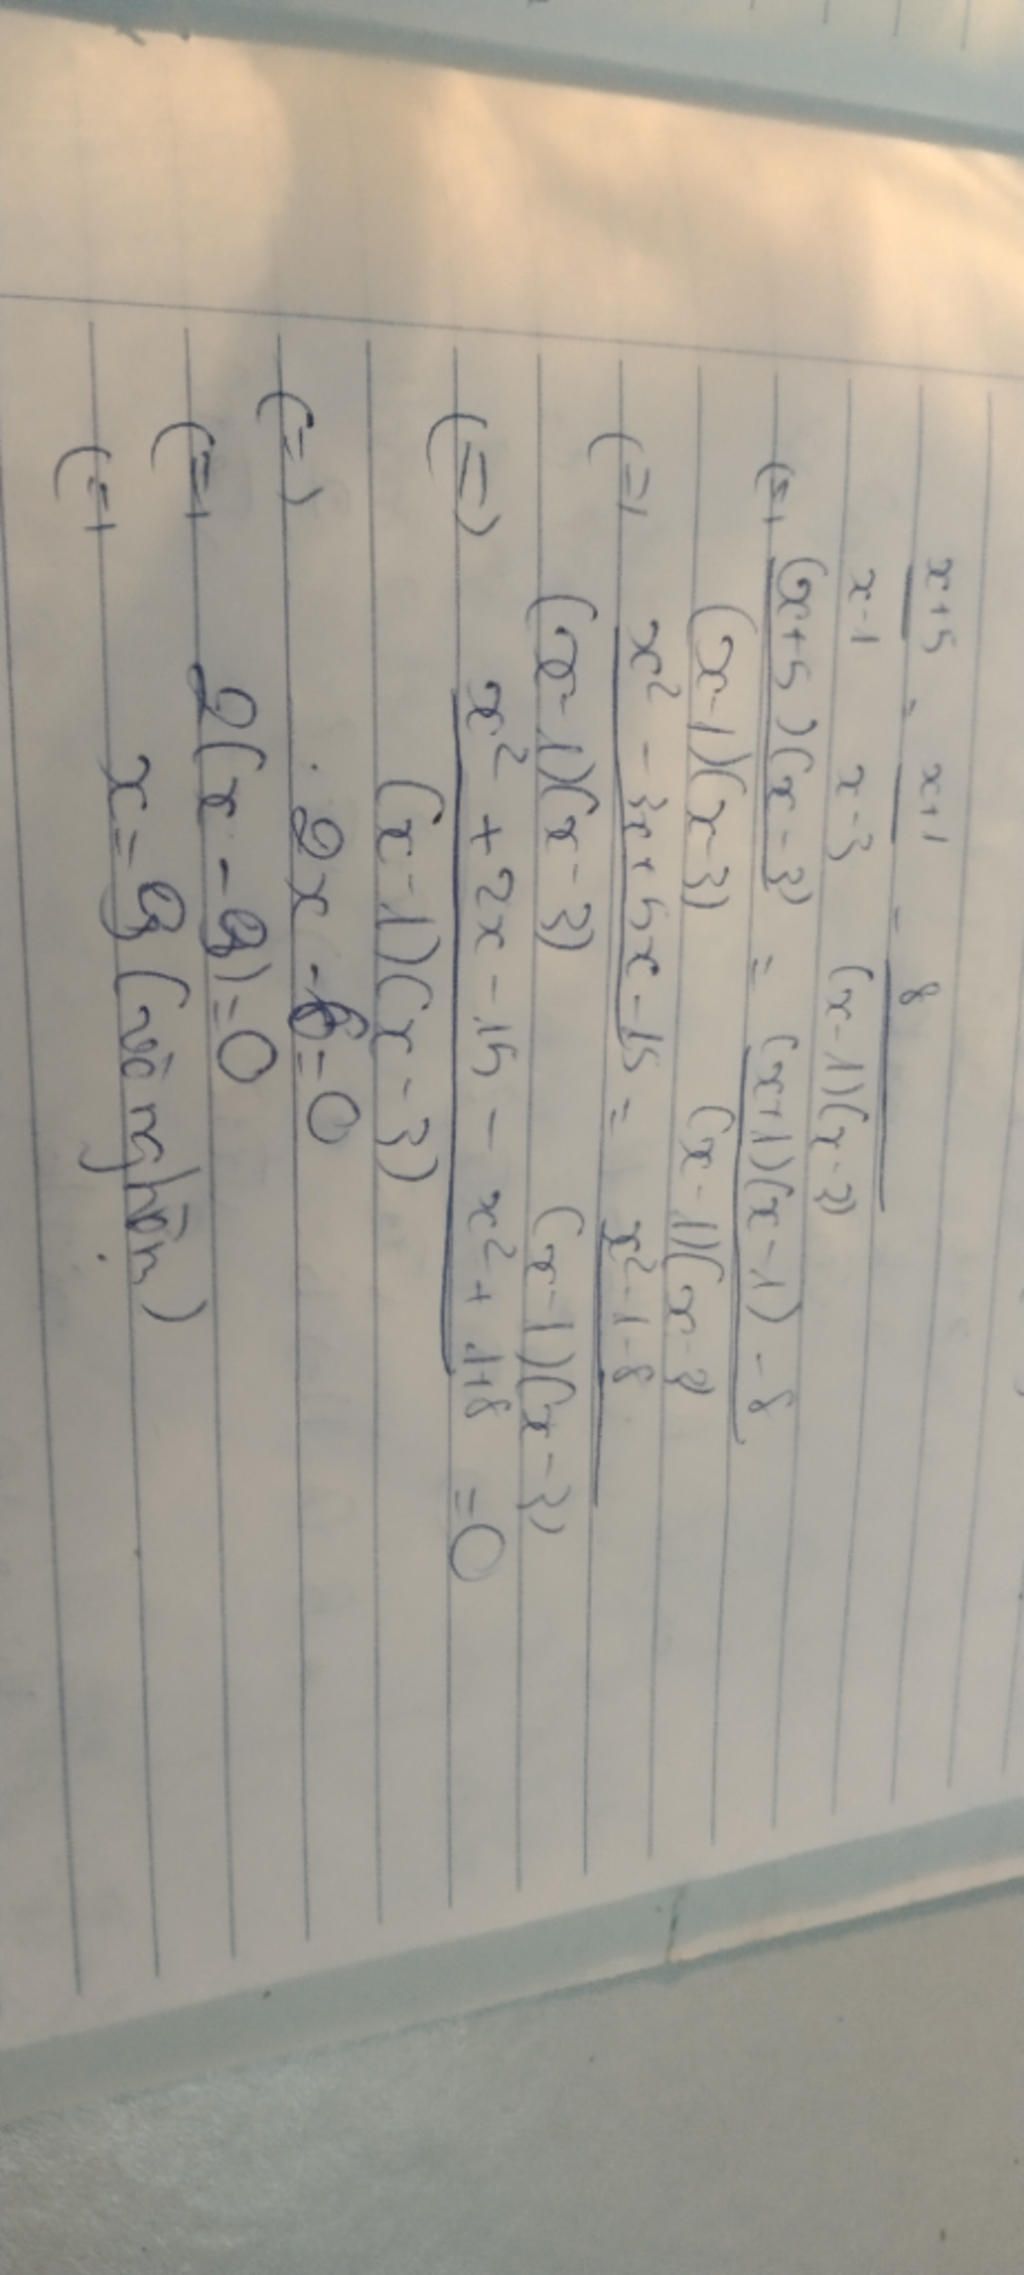 x+5 = x+1 - 8
x-1 x-3 (x-1)(x-3)
(=) (x+5)(x-3) = (x+1)(x-1) - 8
(x-1)(x-3) (x-1)(x-3)
(=) x² - 3x + 5x - 15 = x² - 1 - 8
(x-1)(x-3) (x-1)(x-3)
(=) x² + 2x - 15 - x² + 1+8 = 0
(x-1)(x-3)
(=) 2x - 6 = 0
(=) 2(x - 3) = 0
(=) x = 3 (vô nghiệm)